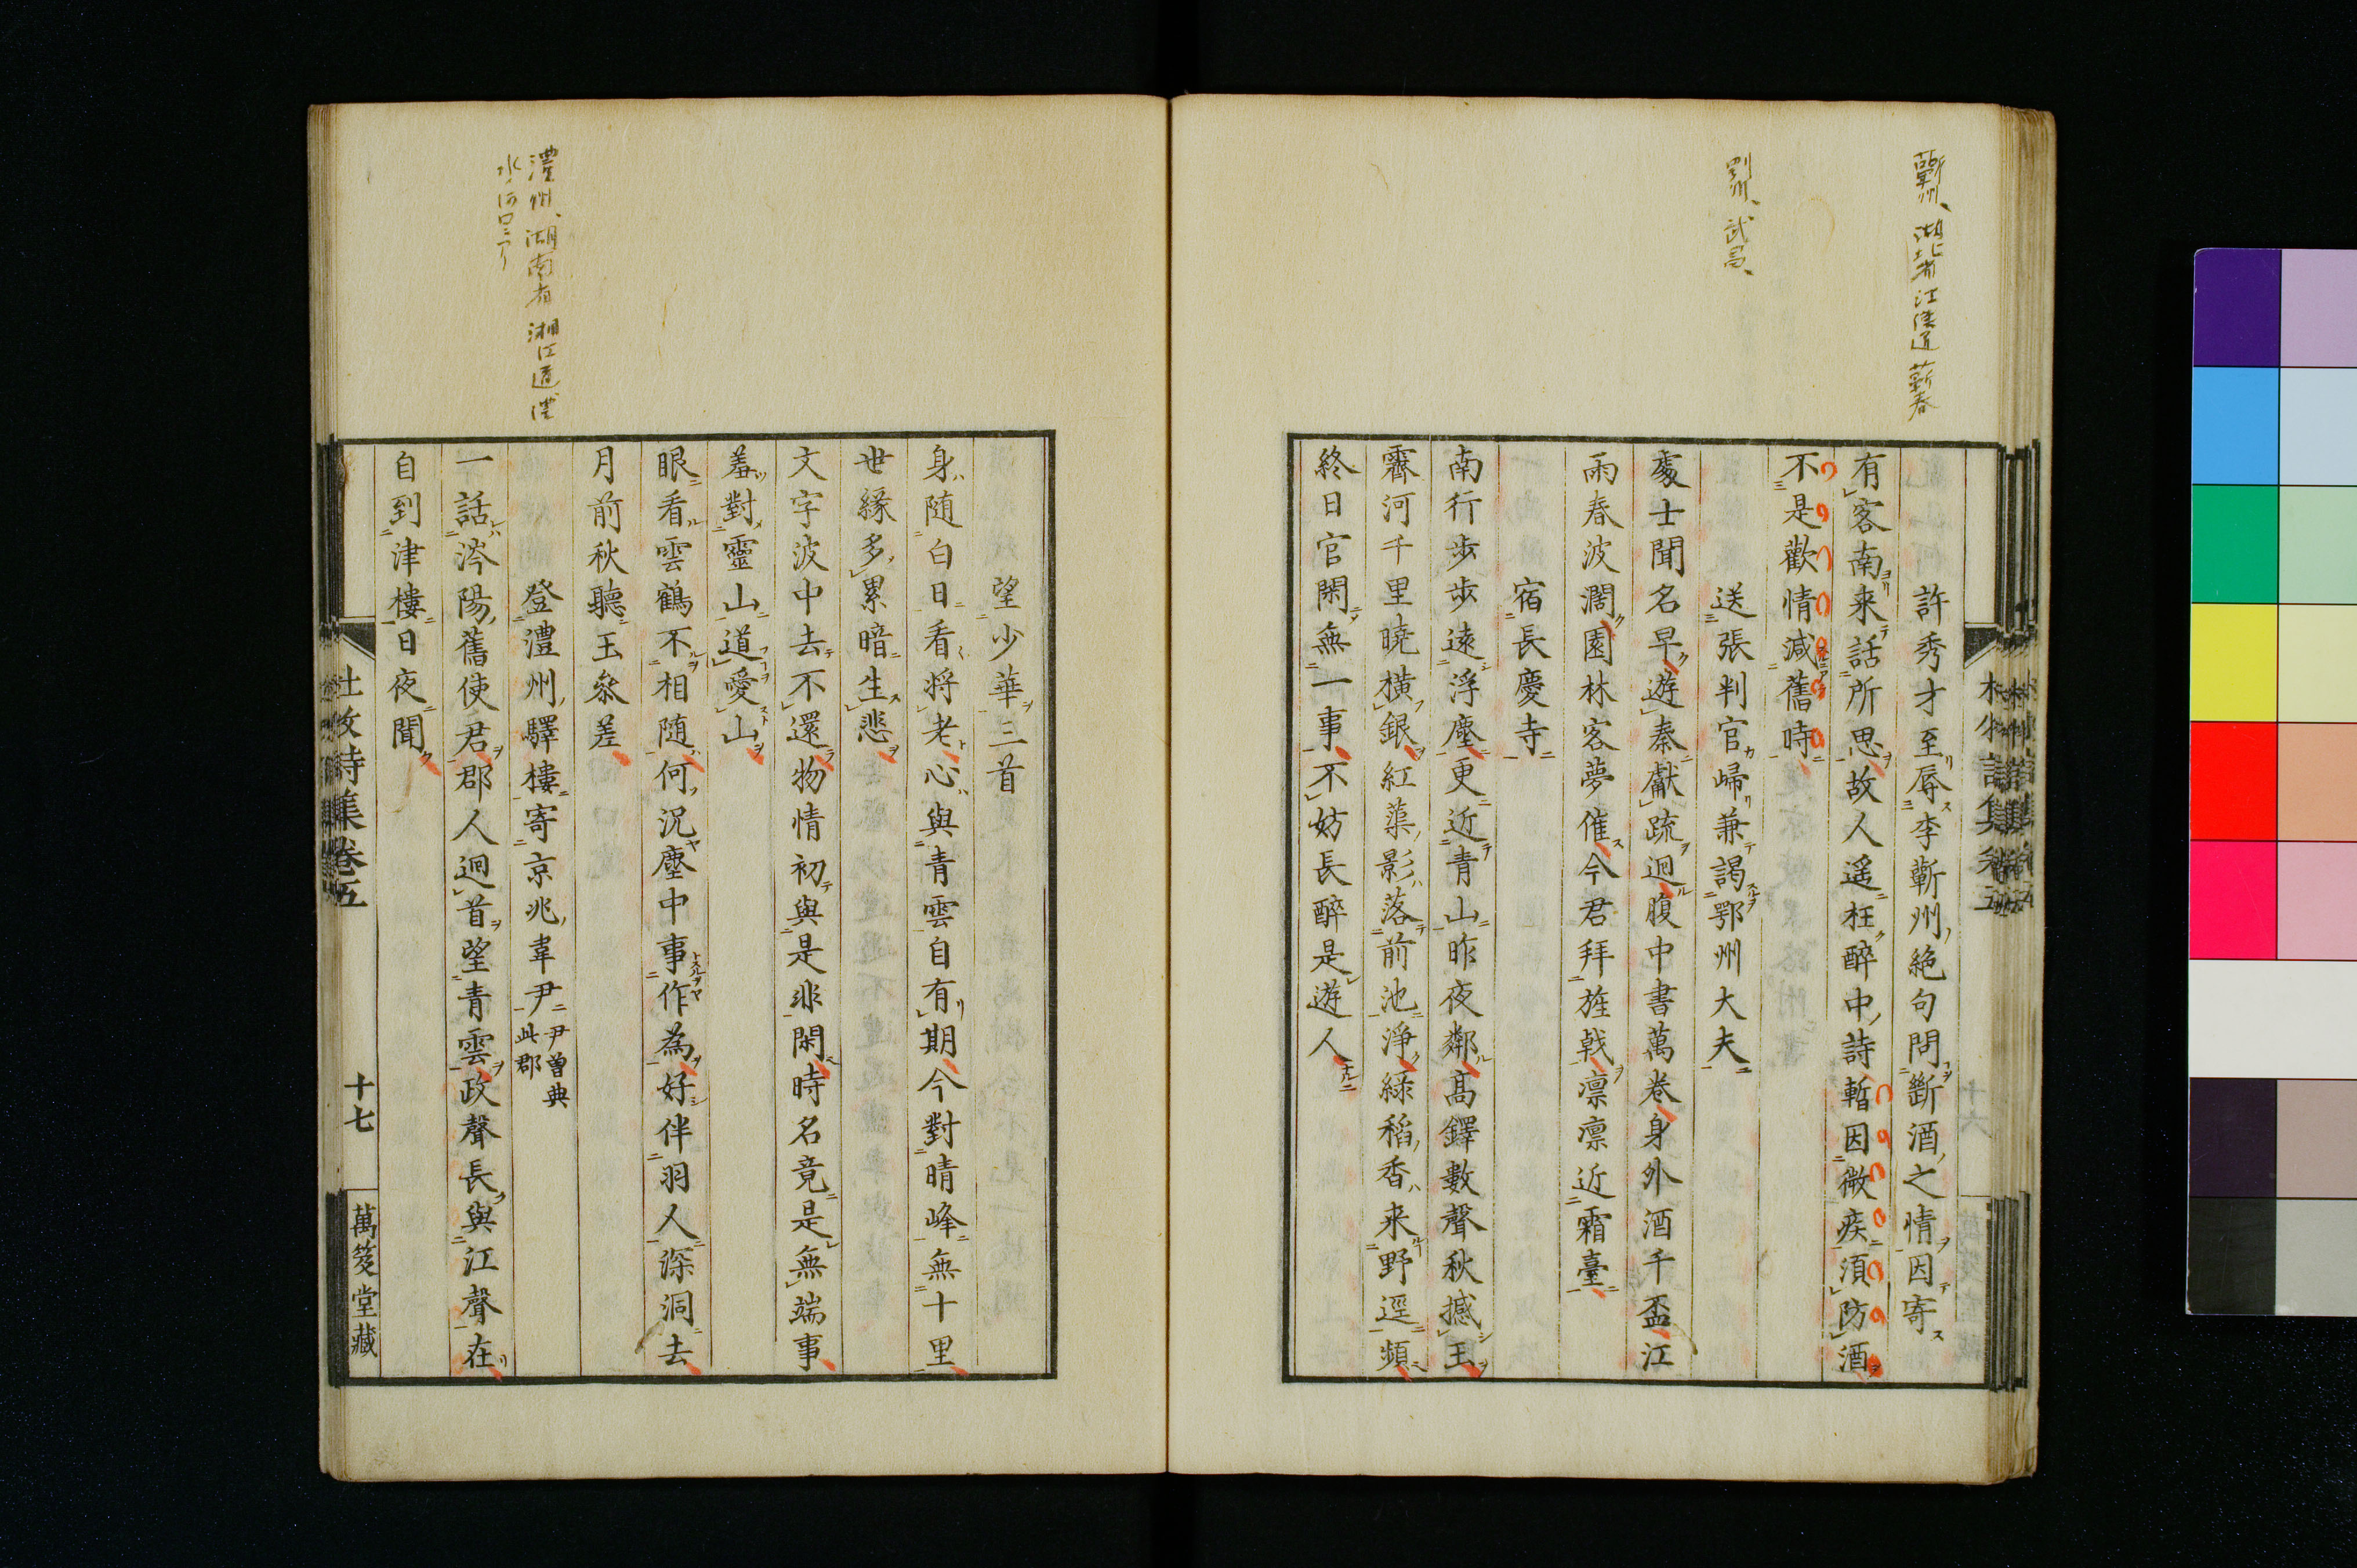 蘄州、湖北省江漢道蘄春
鄂州、武昌、
許秀才至辱李蘄州絶句問斷酒之情因寄
有客南来話所思故人遥枉醉中詩暫因微疾須防酒
不是歡情減舊時
送張判官歸兼謁鄂州大夫
處士聞名早遊秦獻疏迴腹中書萬卷身外酒千盃江
雨春波濶園林客夢催今君拜旌戟凛凛近霜臺
宿長慶寺
南行步步遠浮塵更近青山昨夜鄰高鐸數聲秋撼玉
霽河千里曉橫銀紅蕖影落前池淨綠稻香来野逕頻
終日官閑無一事不妨長醉是遊人
澧州、湖南省湘江道澧
水ノ河口ニアリ
望少華三首
身随白日看將老心與青雲自有期今對晴峰無十里
世緣多累暗生悲
文字波中去不還物情初與是非閑時名竟是無端事
羞對靈山道愛山
眼看雲鶴不相随何況塵中事作為好伴羽人深洞去
月前秋聽玉參差
登澧州驛樓寄京兆韋尹尹曽典此郡
一話涔陽舊使君郡人迴首望青雲政聲長與江聲在
自到津樓日夜聞
杜牧詩集卷五
十七
萬笈堂藏